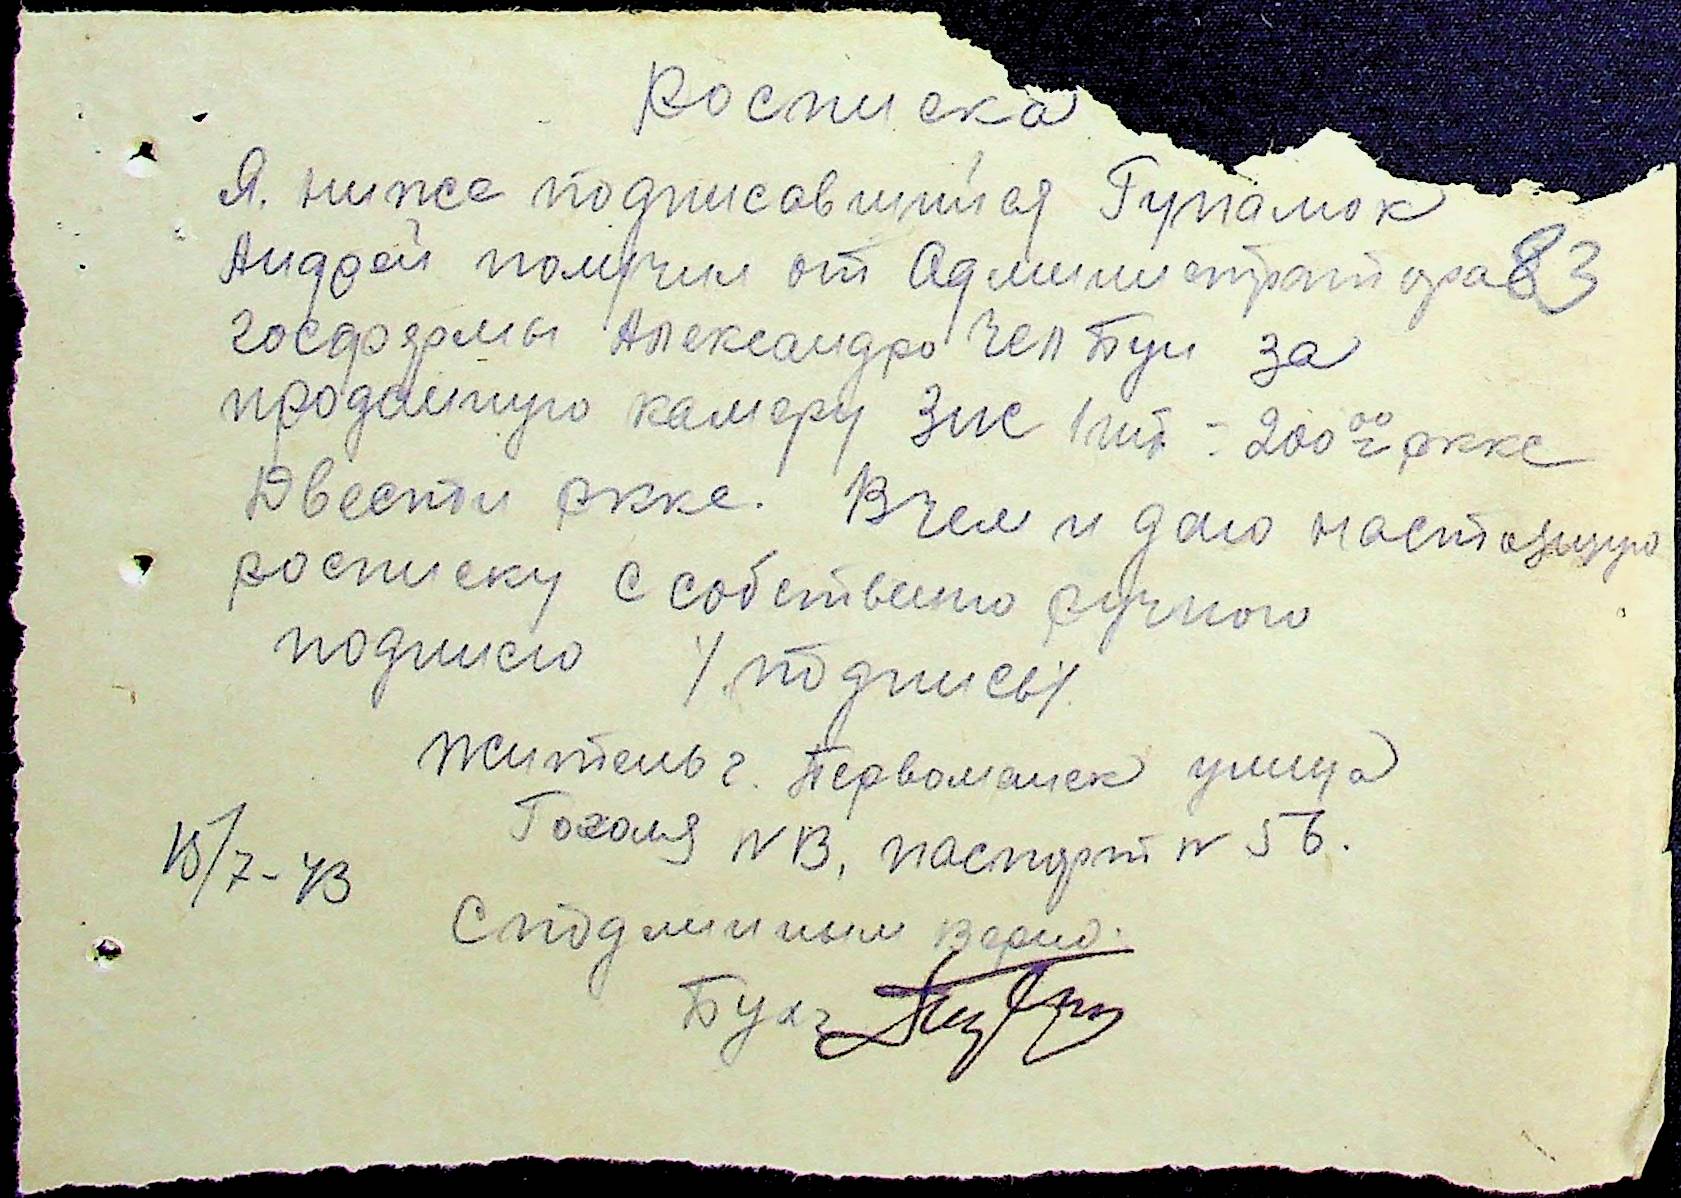 Росписка
Я. ниже подписавшийся Гупалюк
Андрей получил от Администратора 83
госфермы Александра Челбуи за
проданную камеру Зис 1 шт - 200 00 ркке
Двести ркке. В чем и даю настоящую
росписку с собственно ручного
подписю /подпись/.
Житель г. Первомайск улица
Гоголя N 13, паспорт N 56.
15/7-43
С подлинным верно.
Бухг